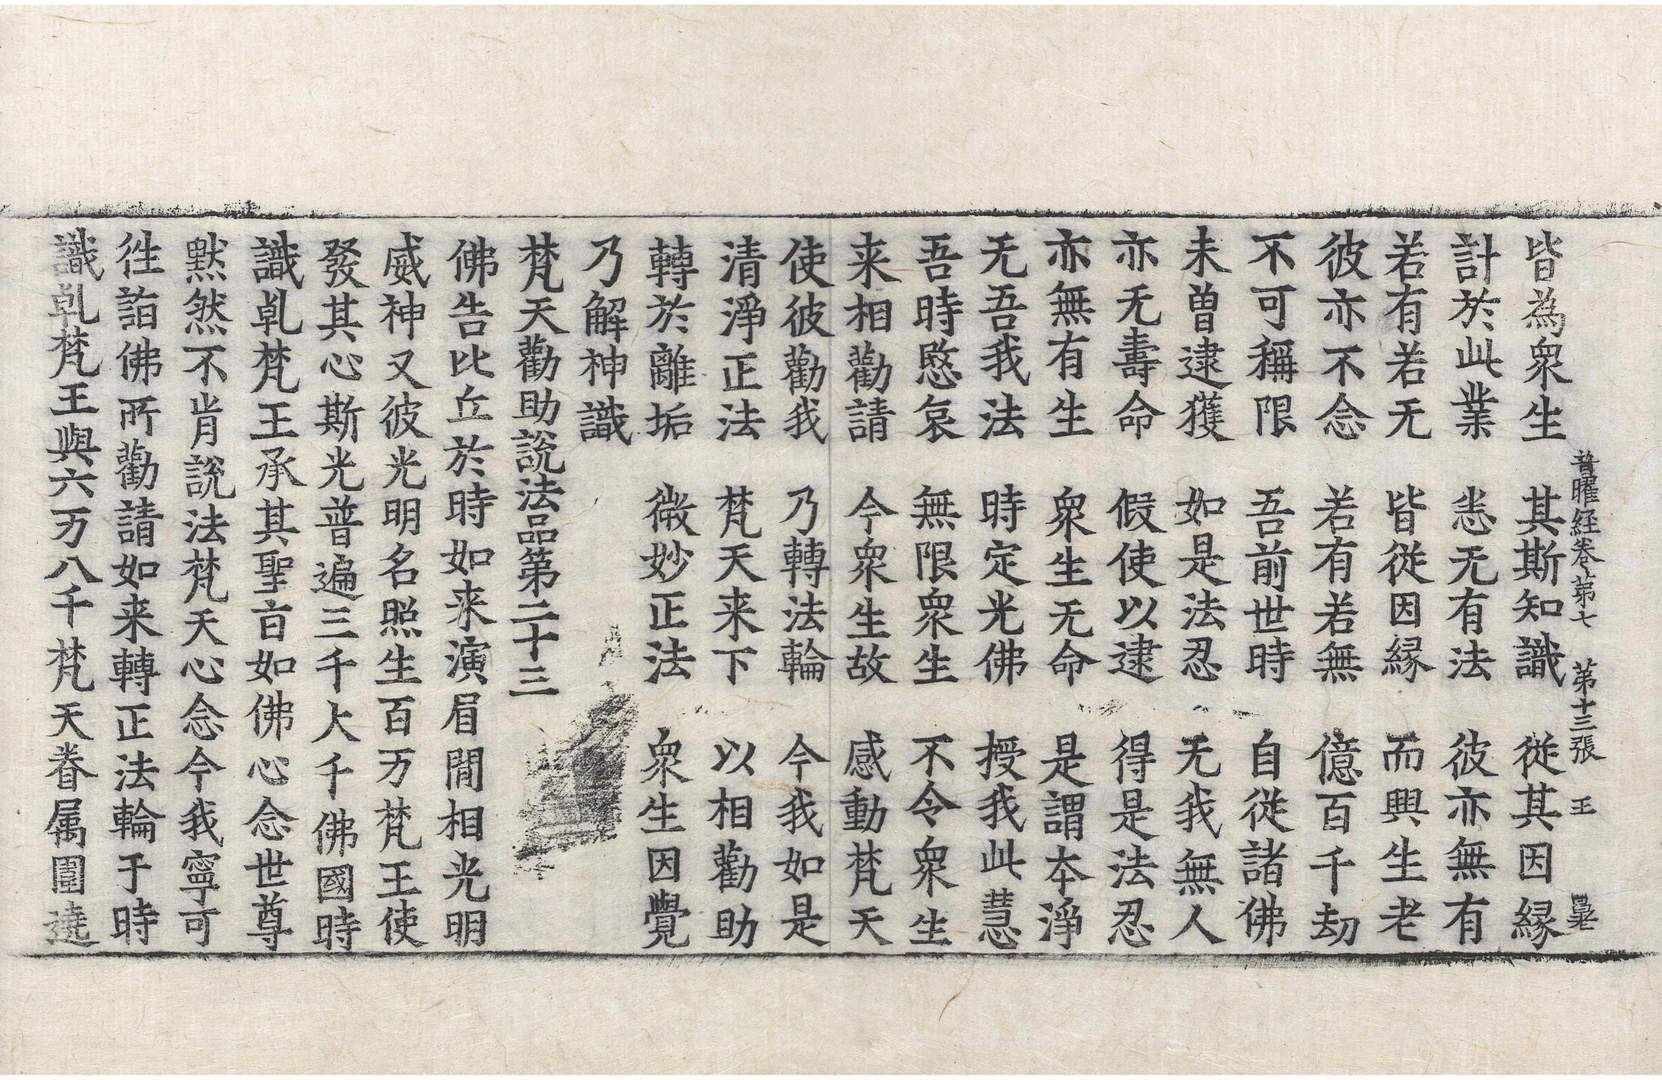 普曜経卷第七　第十三張　王
皆為衆生　其斯知識　從其因縁
計於此業　恙无有法　彼亦無有
若有若无　皆從因縁　而興生老
彼亦不念　若有若無　億百千劫
不可稱限　吾前世時　自從諸佛
未曽逮獲　如是法忍　无我無人
亦无壽命　假使以逮　得是法忍
亦無有生　衆生无命　是謂本淨
无吾我法　時定光佛　授我此慧
吾時愍哀　無限衆生　不令衆生
来相勸請　今衆生故　感動梵天
使彼勸我　乃轉法輪　今我如是
清淨正法　梵天来下　以相勸助
轉於離垢　微妙正法　衆生因覺
乃解神識
梵天勸助說法品第二十三
佛告比丘於時如来演眉間相光明
威神又彼光明名照生百万梵王使
發其心斯光普遍三千大千佛國時
識乹梵王承其聖㫖如佛心念世尊
默然不肯說法梵天心念今我寧可
徃詣佛所勸請如来轉正法輪于時
識乹梵王與六万八千梵天眷属圍遶